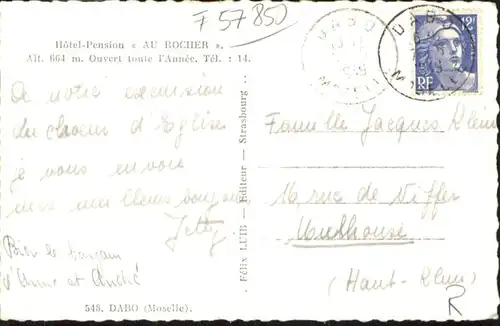 F 57850
Hôtel-Pension « AU ROCHER ».
Alt. 664 m. Ouvert toute l'Année. Tél. : 14.
DABO
MOSELLE
DABO
MOSELLE
12F
RF
De notre excursion
du choeur d'Eglise
je vous envoie
mes meilleurs bonjours
Jetty
d'Anne et André
548. DABO (Moselle).
Félix LUIB — Editeur — Strasbourg
Famille Jacques Klein
16 rue de
Mulhouse
(Haut-Rhin)
R